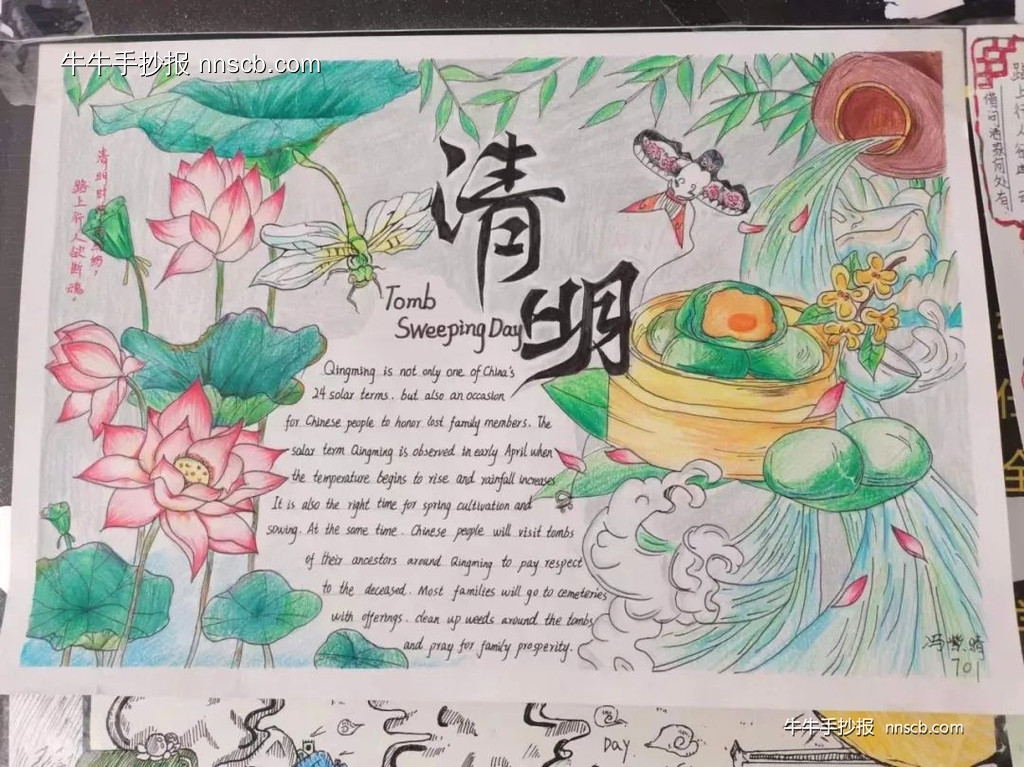 牛牛手抄报 nnscb.com
清明
Tomb
Sweeping Day
清明时
路上行人欲断魂。
Qingming is not only one of China's
24 solar terms. but also an occasion
for Chinese people to honor lost family members. The
solar term Qingming is observed in early April when
the temperature begins to rise and rainfall increases
It is also the right time for spring cultivation and
sowing. At the same time. Chinese people will visit tombs
of their ancestors around Qingming to pay respect
to the deceased. Most families will go to cemeteries
with offerings. clean up weeds around the tombs
and pray for family prosperity.
701
路上行人欲
借问酒家何处有
全
Day
牛牛手抄报 nnscb.com